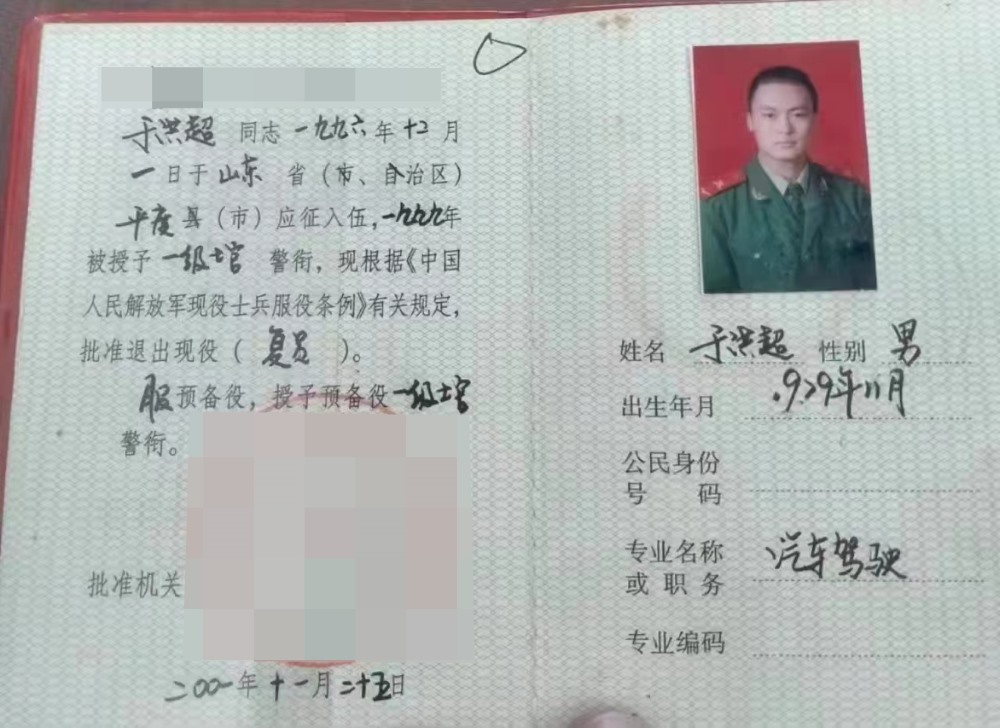 于洪超 同志 一九九六年 十二 月
一 日于 山东 省（市、自治区）
平度 县（市）应征入伍，一九九九年
被授予 一级士官 警衔，现根据《中国
人民解放军现役士兵服役条例》有关规定，
批准退出现役（ 复员 ）。
服 预备役，授予预备役 一级士官
警衔。
批准机关
二〇〇一年 十一 月 二十五日
姓名 于洪超 性别 男
出生年月 1979年11月
公民身份
号 码
专业名称 汽车驾驶
或 职 务
专业编码